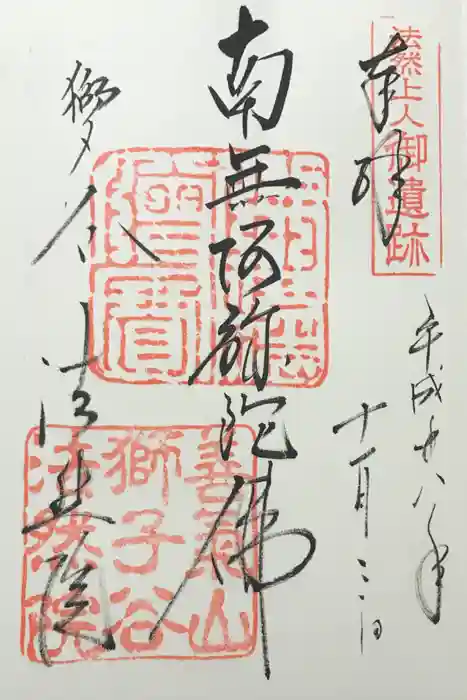 法然上人御遺跡
奉拝
平成廿八年
十一月三日
南無阿弥陀佛
獅ヶ谷 法然院
善氣山
獅子谷
法然院